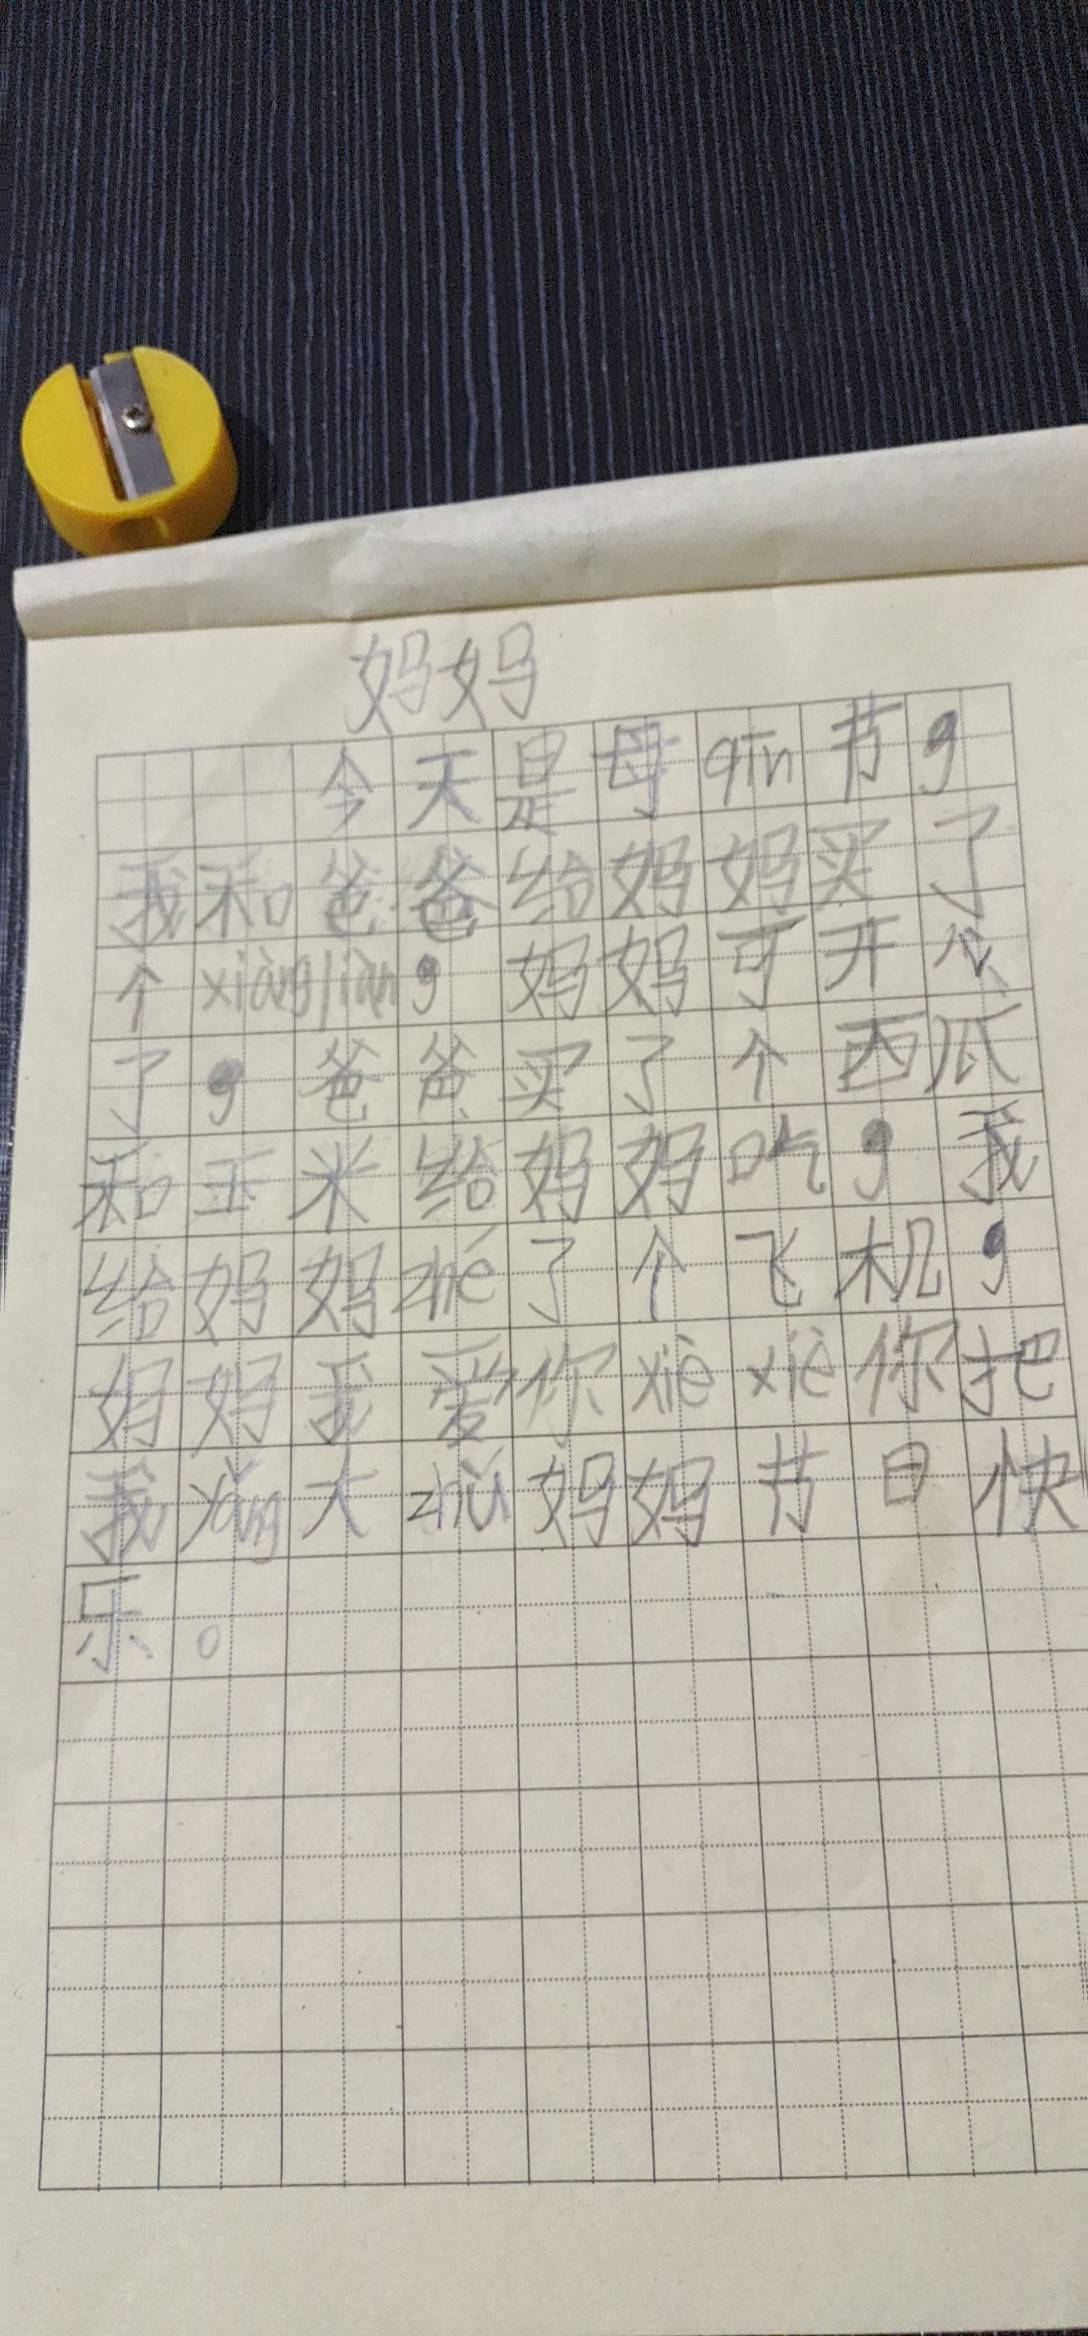 妈妈
今天是母qīn节，
我和爸爸给妈妈买了
个xiàngliàn，妈妈可开心
了，爸爸买了个西瓜
和玉米给妈妈吃，我
给妈妈zhé了个飞机，
妈妈我爱你xièxiè你把
我yǎng大zhù妈妈节日快
乐。